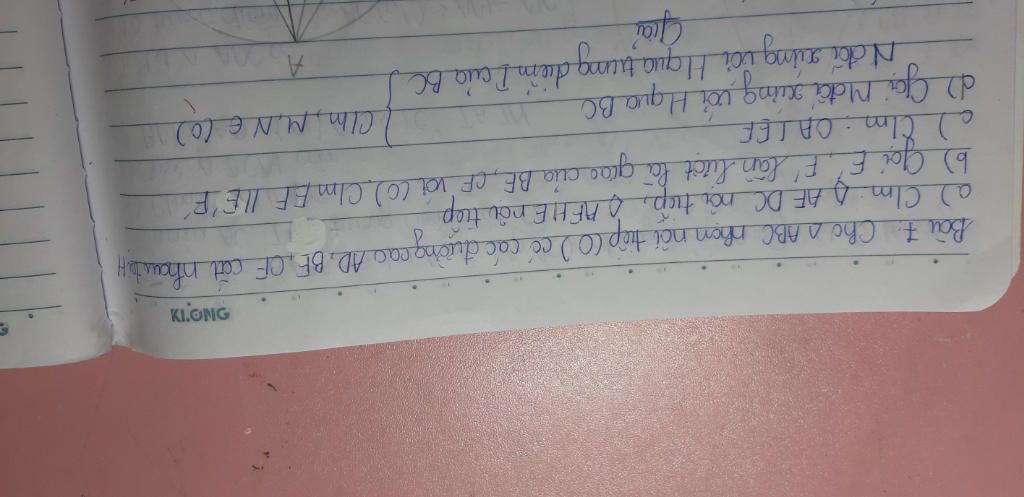 KLONG
Bài 7. Cho △ ABC nhọn nội tiếp (O) có các đường cao AD, BE, CF cắt nhau tại H
a) C/m: ◊ AFDC nội tiếp, ◊ AFHE nội tiếp
b) Gọi E', F' lần lượt là giao của BE, CF với (O). C/m EF // E'F'
c) C/m: OA ⊥ EF
d) Gọi M đối xứng với H qua BC } C/m, M, N ∈ (O)
N đối xứng với H qua trung điểm I của BC
Giải
A